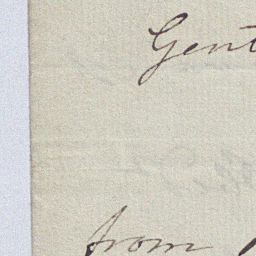 Gent
from